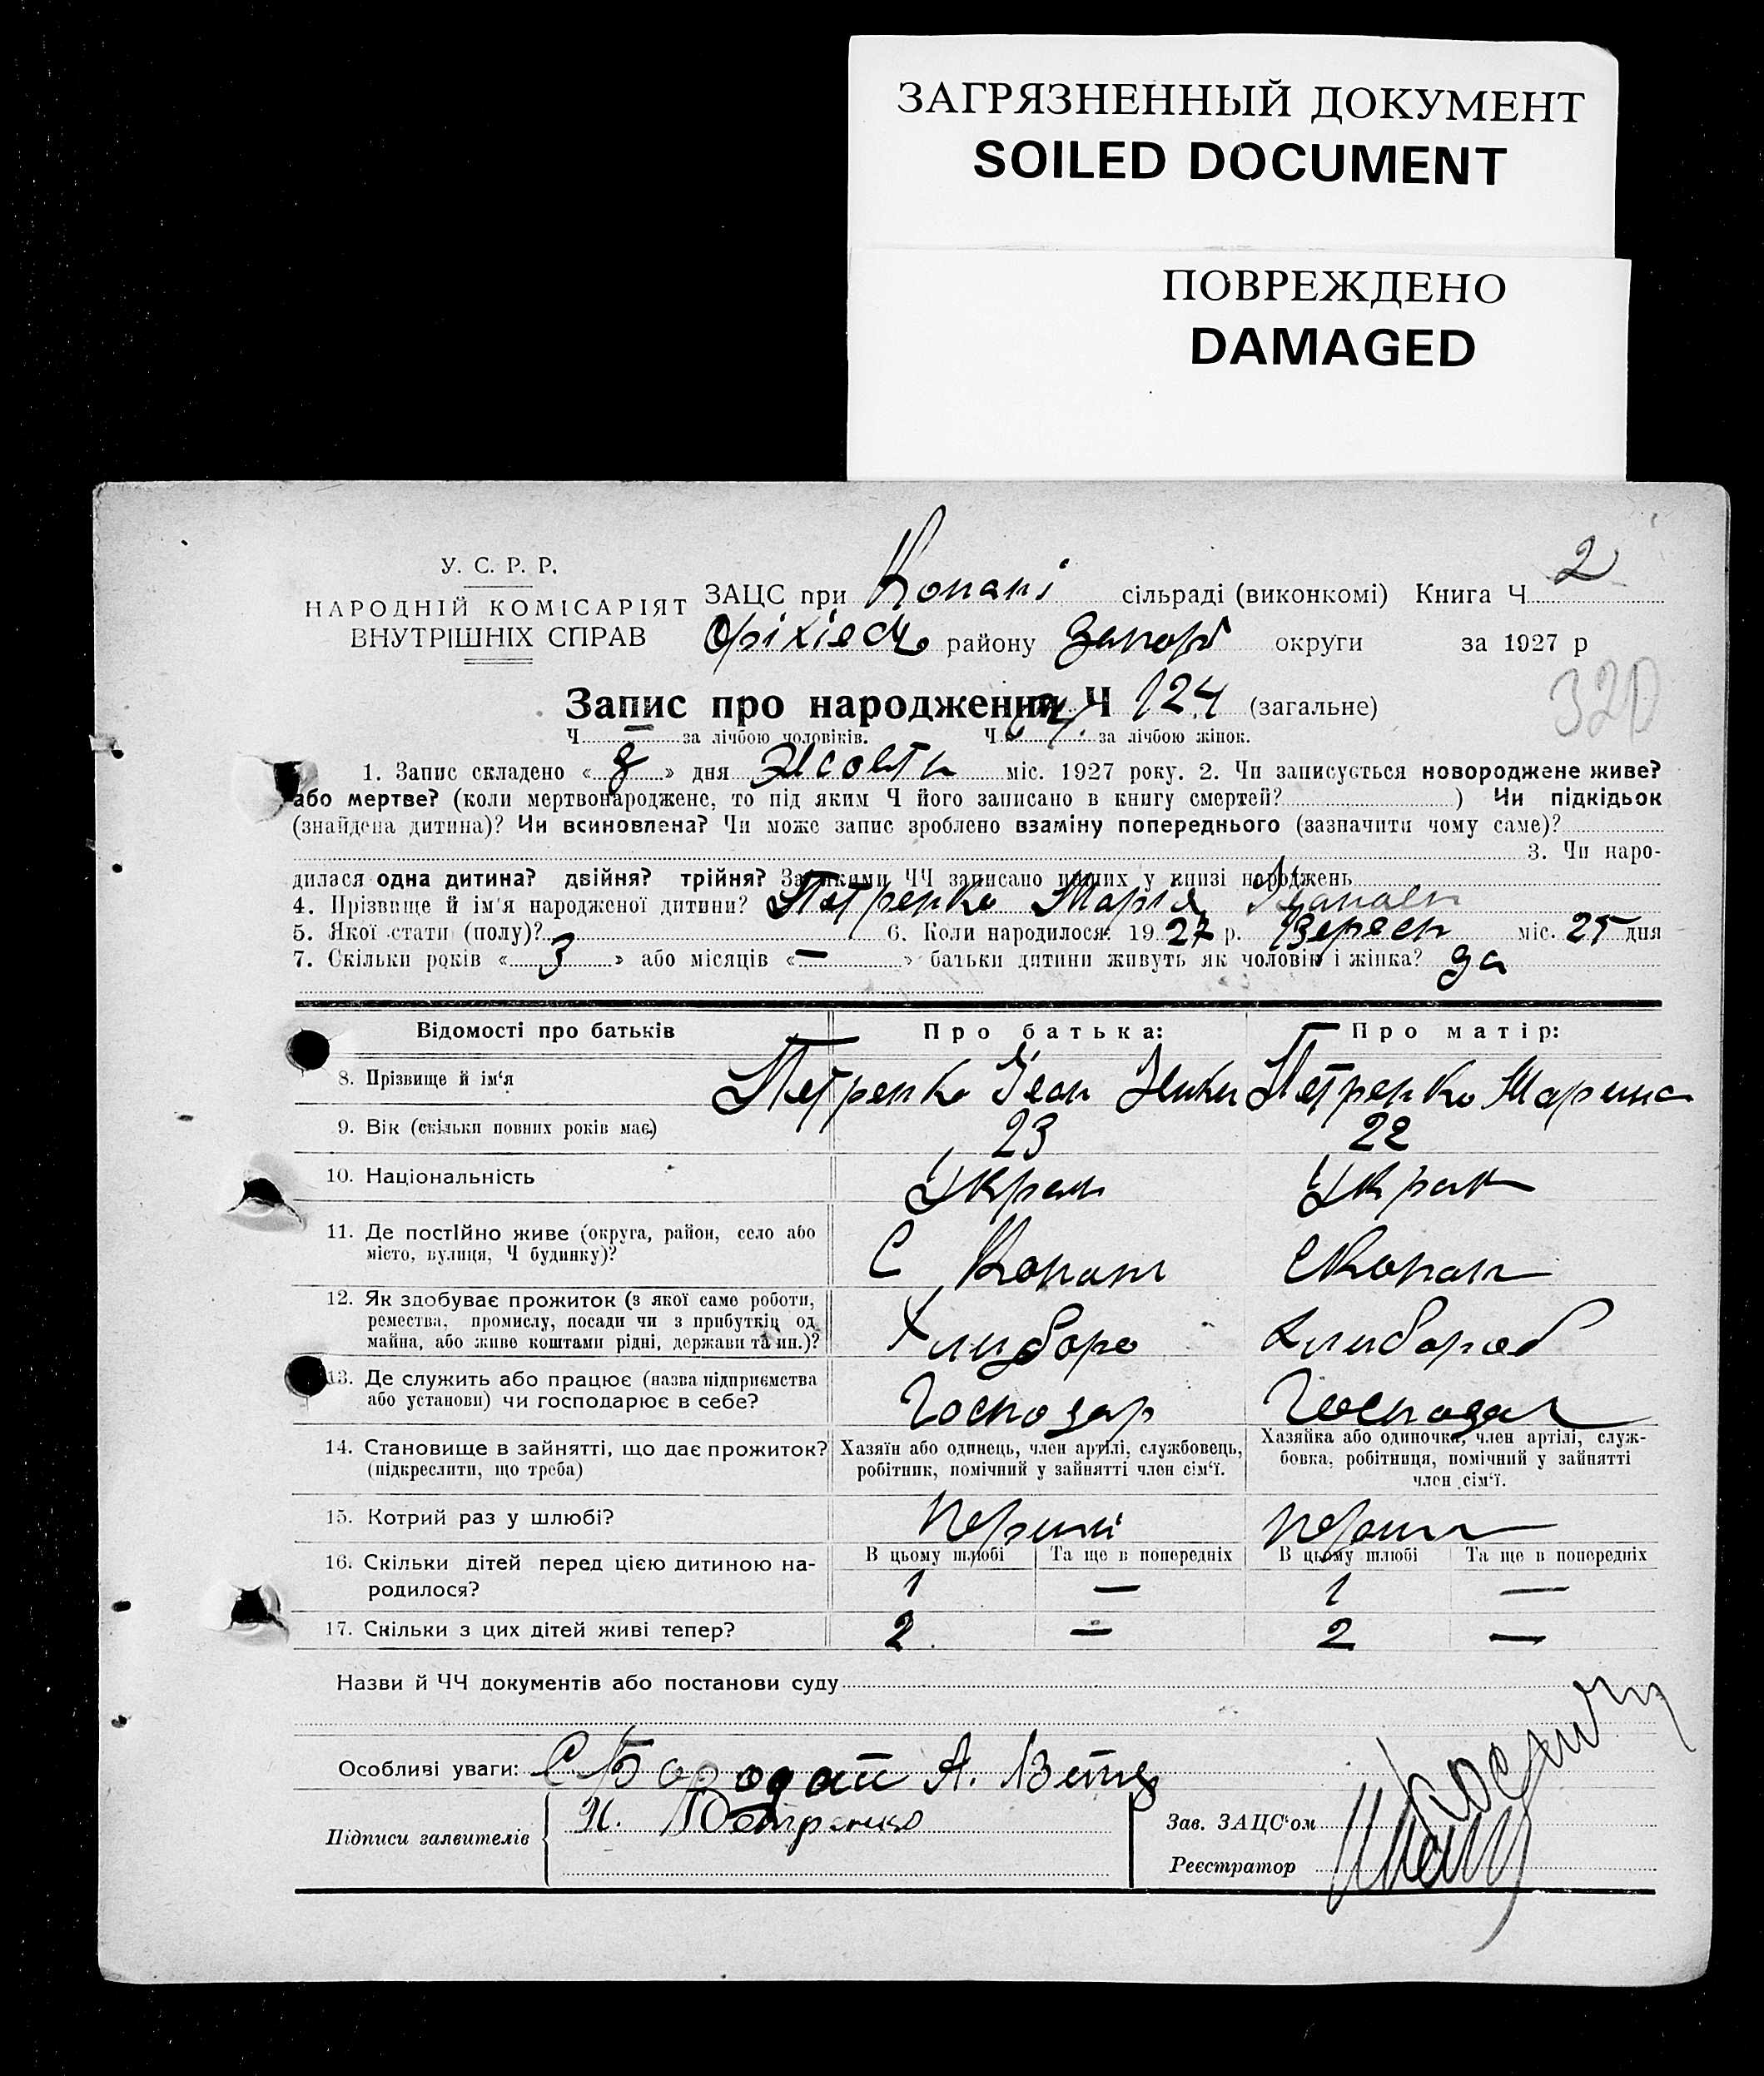 ЗАГРЯЗНЕННЫЙ ДОКУМЕНТ
SOILED DOCUMENT
ПОВРЕЖДЕНО
DAMAGED
У. С. Р. Р.
НАРОДНІЙ КОМІСАРІЯТ
ВНУТРІШНІХ СПРАВ
ЗАЦС при Копані сільраді (виконкомі) Книга Ч 2
Оріхівсь району Запор округи за 1927 р
320
Запис про народження Ч 124 (загальне)
Ч — за лічбою чоловіків. Ч за лічбою жінок.
1. Запис складено « 8 » дня Жовтн міс. 1927 року. 2. Чи записується новороджене живе?
або мертве? (коли мертвонароджене, то під яким Ч його записано в книгу смертей? ) Чи підкідьок
(знайдена дитина)? Чи всиновлена? Чи може запис зроблено взаміну попереднього (зазначити чому саме)?
3. Чи наро-
дилася одна дитина? двійня? трійня? За якими ЧЧ записано инших у книзі народжень
4. Прізвище й ім'я народженої дитини? Петренко Марія Іванов
5. Якої стати (полу)? 6. Коли народилося: 1927 р. Вересн міс. 25 дня
7. Скільки років « 3 » або місяців « — » батьки дитини живуть як чоловік і жінка? За
Відомості про батьків Про батька: Про матір:
8. Прізвище й ім'я Петренко Іван Петренко Марина
9. Вік (скільки повних років має) 23 22
10. Національність Украін Украін
11. Де постійно живе (округа, район, село або
місто, вулиця, Ч будинку)? С Копани С Копан
12. Як здобуває прожиток (з якої саме роботи,
ремества, промислу, посади чи з прибутків од
майна, або живе коштами рідні, держави та ин.)? Хлиборо Хлибороб
13. Де служить або працює (назва підприємства
або установи) чи господарює в себе? Господар Господар
14. Становище в зайнятті, що дає прожиток?
(підкреслити, що треба)
Хазяїн або одинець, член артілі, службовець,
робітник, помічний у зайнятті член сім'ї.
Хазяйка або одиночка, член артілі, служ-
бовка, робітниця, помічний у зайнятті
член сім'ї.
15. Котрий раз у шлюбі? Перший Перши
В цьому шлюбі Та ще в попередніх В цьому шлюбі Та ще в попередніх
16. Скільки дітей перед цією дитиною на-
родилося? 1 — 1 —
17. Скільки з цих дітей живі тепер? 2 — 2 —
Назви й ЧЧ документів або постанови суду
Особливі уваги: С Бородат А.
Підписи заявителів И. Петренко
Зав. ЗАЦС'ом
Реєстратор